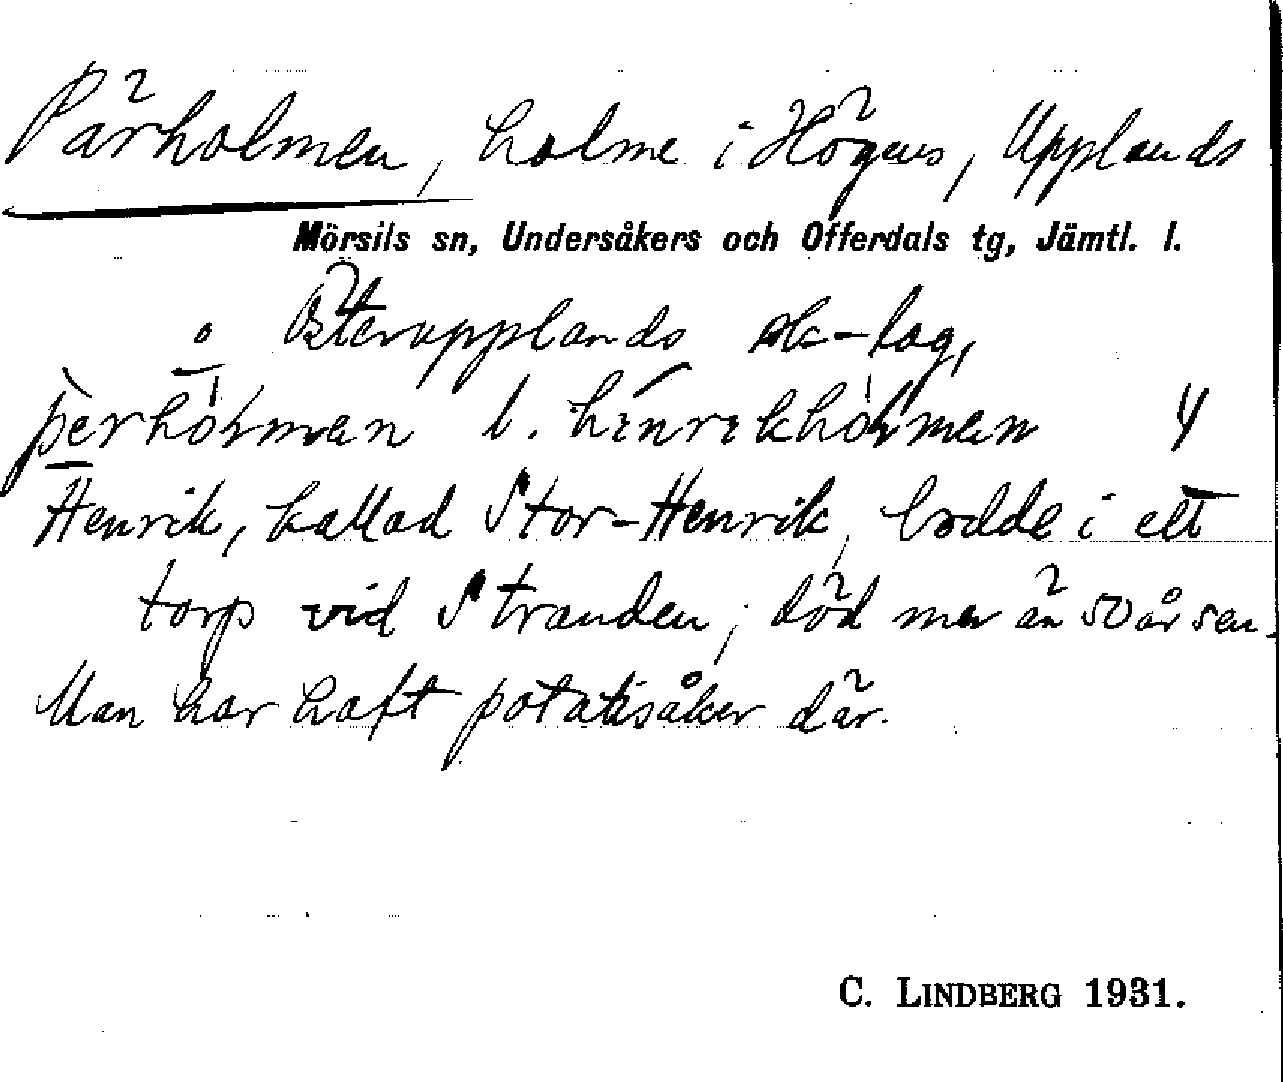 Pärholmen, holme i Högens, Upplands
Mörsils sn, Undersåkers och Offerdals tg, Jämtl. l.
o Österupplands sk-lag,
perhòḷman l. hinrikhòḷman 4
Henrik, kallad Stor-Henrik, bodde i ett
torp vid Stranden; död mer än 50 år sen.
Man har haft potatisåker där.
C. LINDBERG 1931.